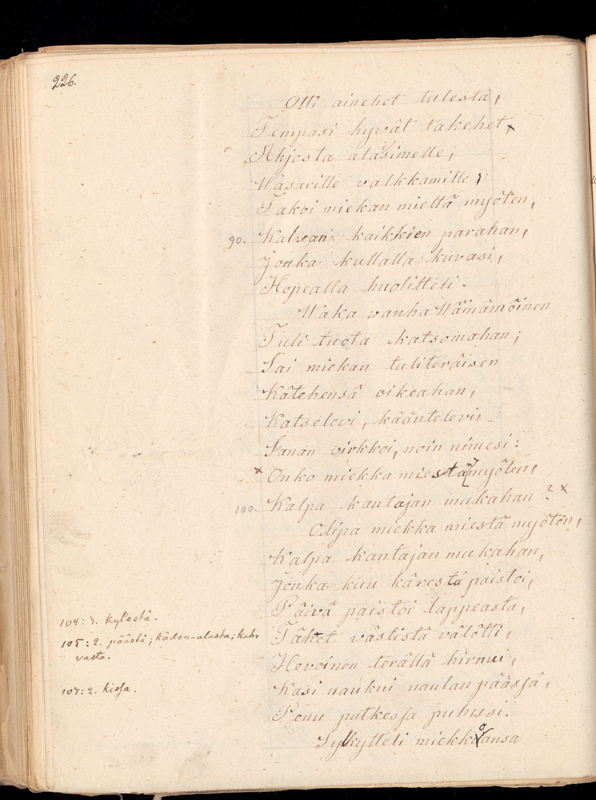 226.
Otti ainehet tulesta,
Tempasi hyvät takehet
Ahjosta alasimelle,
Wasarille valkkamille;
Takoi miekan mieltä myöten,
90. Kalvan kaikkien parahan,
Jonka kullalla kuvasi,
Hopealla huolitteli.
Waka vanha Wäinämöinen
Tuli tuota katsomahan;
Sai miekan tuliteräisen
Kätehensä oikeahan,
Katselevi, kääntelevi,
Sanan virkkoi, noin nimesi:
x Onko miekka miestä myöten,
100. Kalpa kantajan mukahan? x
Olipa miekka miestä myöten,
Kalpa kantajan mukahan,
Jonka kuu kärestä paistoi,
Päivä paistoi lappeasta,
Tähet västistä välötti,
Hevoinen terällä hirnui,
Kasi naukui naulan päässä,
Penu putkessa puhusi.
Sylkytteli miekkoansa
104: 3. kylestä.
105: 2. päästä; käden-alasta; kah-
vasta.
107: 2.